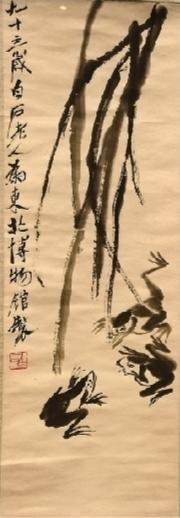 九十三歲白石老人為東北博物館製